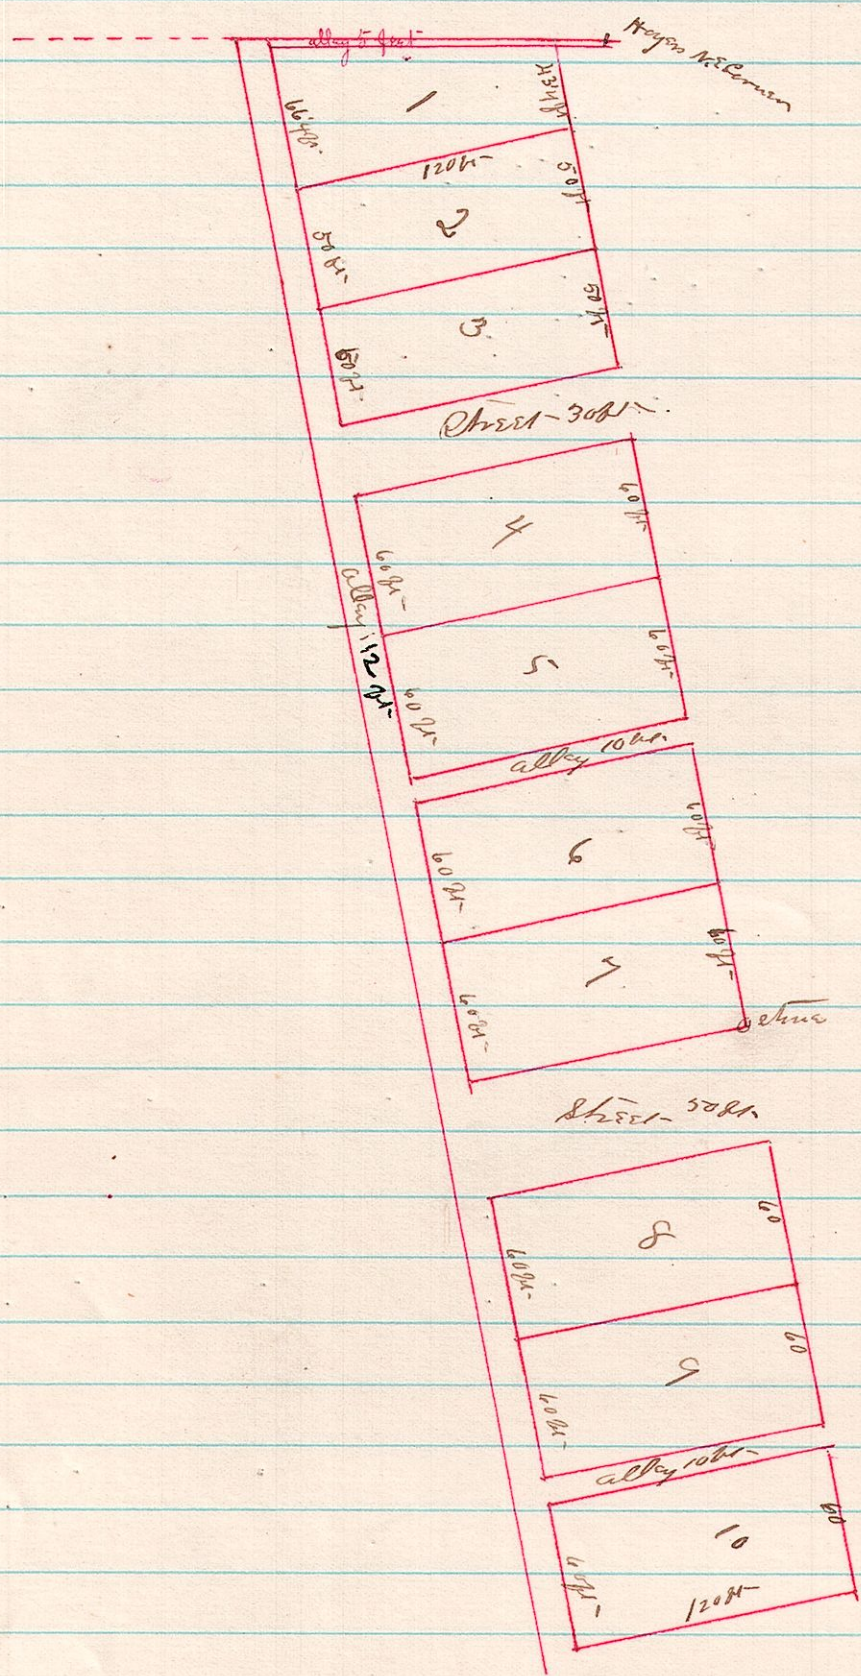 alley 5 feet
Hoyers N.E Corner
1
66 4 ft.
43 4 ft
120 ft
2
50 ft
50 ft
3
50 ft
50 ft
Street 30 ft.
4
60 ft
60 ft
alley 12 ft
5
60 ft
60 ft
alley 10 ft.
6
60 ft
60 ft
7
60 ft
60 ft
Street 50 ft.
8
60 ft
60
9
60 ft
60
alley 10 ft
10
60 ft
60
120 ft